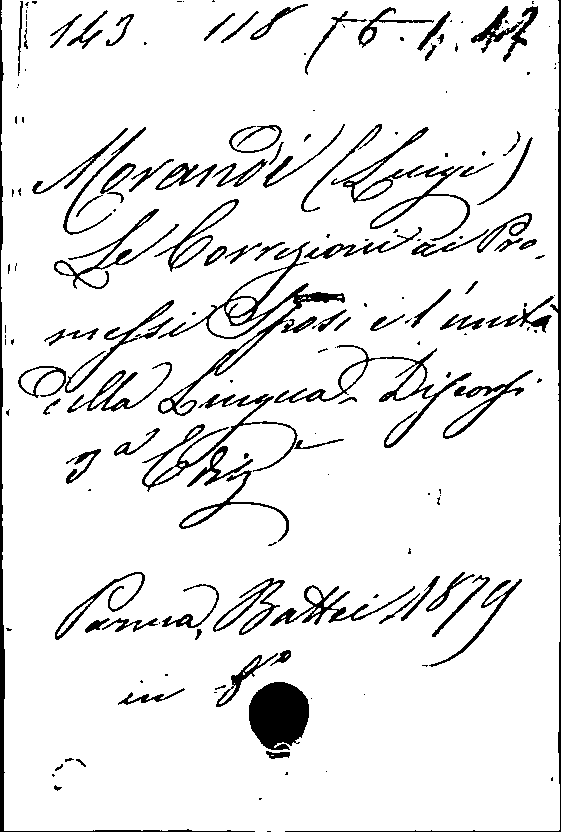 143. 118 6. 1. 47
Morandi (Luigi)
Le Correzioni ai Pro-
messi Sposi e l'unità
della Lingua - Discorsi
3a Ediz
Parma, Battei, 1879
in 8o